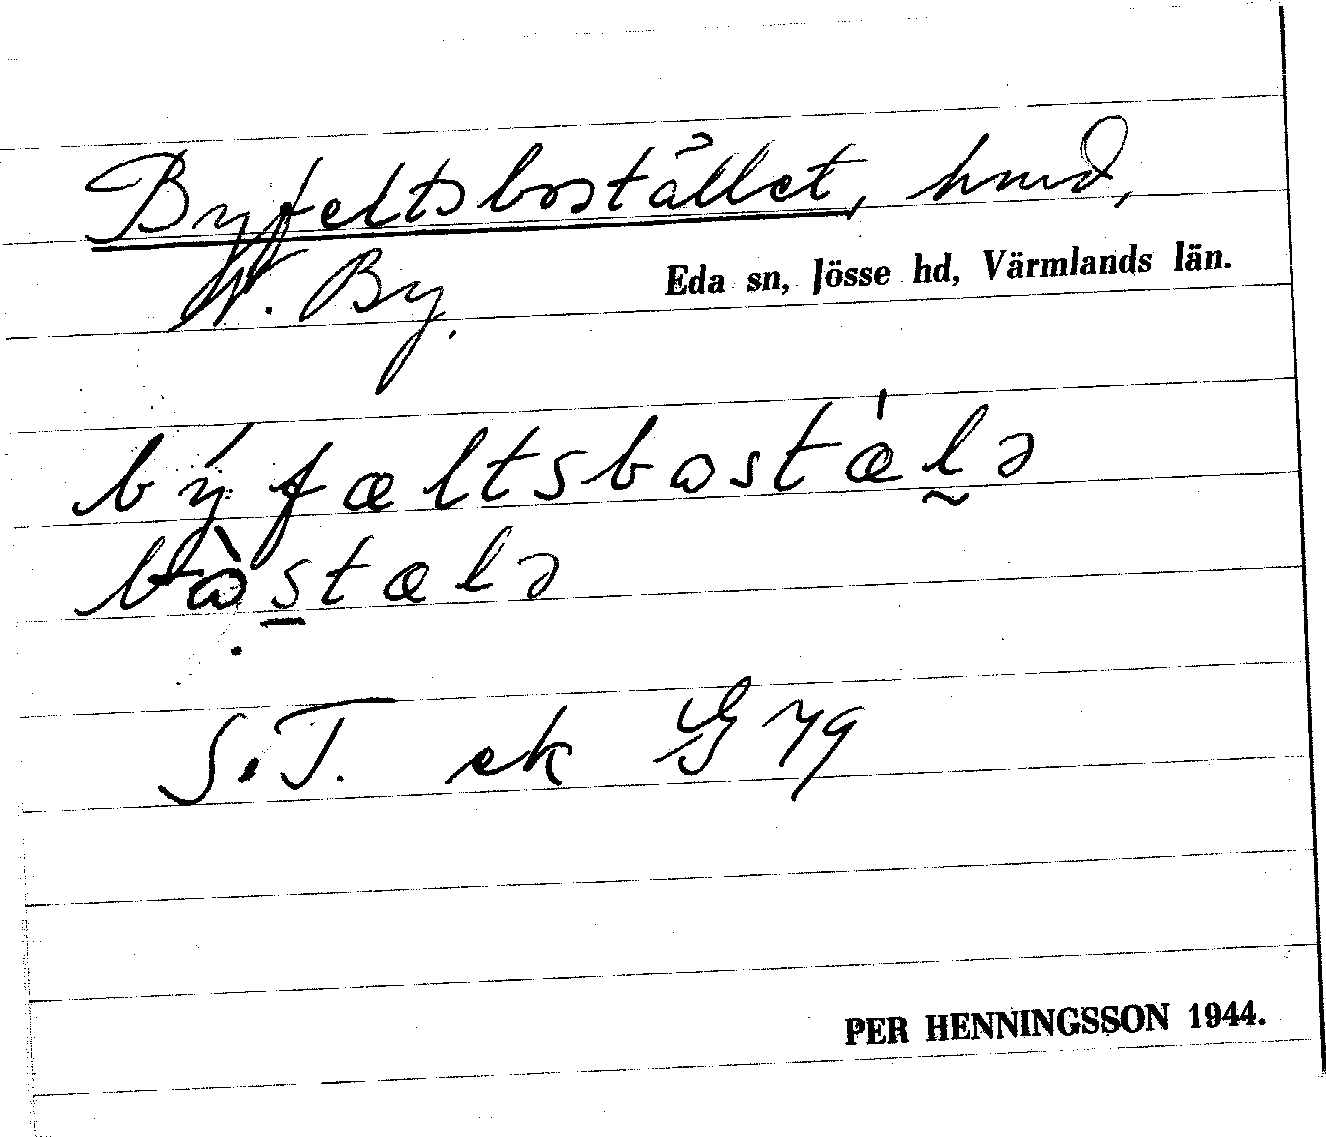 Byfeltsbostället, hmd,
N. By.
Eda sn, Jösse hd, Värmlands län.
býfæltsbωstǽl̰ə
bὼstælə
S.T. ek G 79
PER HENNINGSSON 1944.